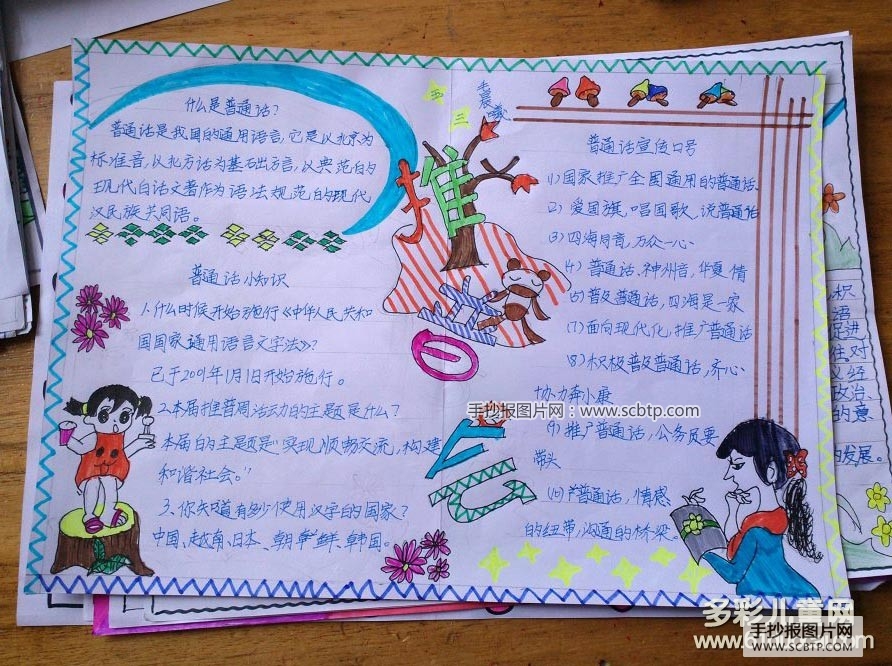 什么是普通话?
普通话是我国的通用语言,它是以北京为
标准音,以北方话为基础方言,以典范的
现代白话文著作为语法规范的现代
汉民族共同语。
普通话小知识
1.什么时候开始施行《中华人民共和
国国家通用语言文字法》?
已于2001年1月1日开始施行。
2.本届推普周活动的主题是什么?
本届的主题是“实现顺畅交流,构建
和谐社会。”
3.你知道有多少使用汉字的国家?
中国、越南、日本、朝鲜、韩国。
五
三
毛
晨
曦
推
普
通话宣传口号
1)国家推广全国通用的普通话.
2) 爱国旗,唱国歌,说普通话
(3)四海同音,万众一心.
(4) 普通话、神州音,华夏情
(5)普及普通话,四海是一家
(7)面向现代化,推广普通话
(8)积极普及普通话,齐心.
协力奔小康
(9)推广普通话,公务员要
带头
(10)普通话,情感
的纽带,沟通的桥梁。
手抄报图片网:www.scbtp.com
积
语
促进
往对
义经
政治、
的意
的发展。
多彩儿童网
手抄报图片网
WWW.SCBTP.COM